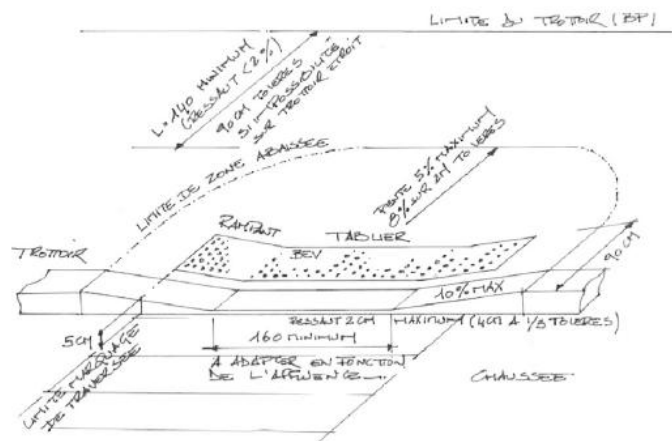 LIMITE DU TROTTOIR (BP)
L=140 MINIMUM
(RESSAUT <2%)
90CM TOLERES
SI IMPOSSIBILITE
SUR TROTTOIR ETROIT
LIMITE DE ZONE ABAISSEE
PENTE 5% MAXIMUM
8% SUR 2M TOLERES
RAMPANT
TABLIER
BEV
TROTTOIR
90CM
10% MAX
RESSAUT 2CM MAXIMUM (4CM A 1/3 TOLERES)
5CM
160 MINIMUM
A ADAPTER EN FONCTION
DE L'AFFLUENCE...
LIMITE MARQUAGE
DE TRAVERSEE
CHAUSSEE